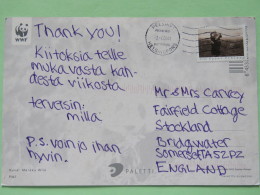 WWF
Thank you!
Kiitoksia teille
mukavasta kah-
desta viikosta
terveisin,
milla
P.S. voin jo ihan
hyvin.
PALETTI
Mr & Mrs Carvey
Fairfield Cottage
Stockland
Bridgwater
Somerset TA5 2PZ
ENGLAND